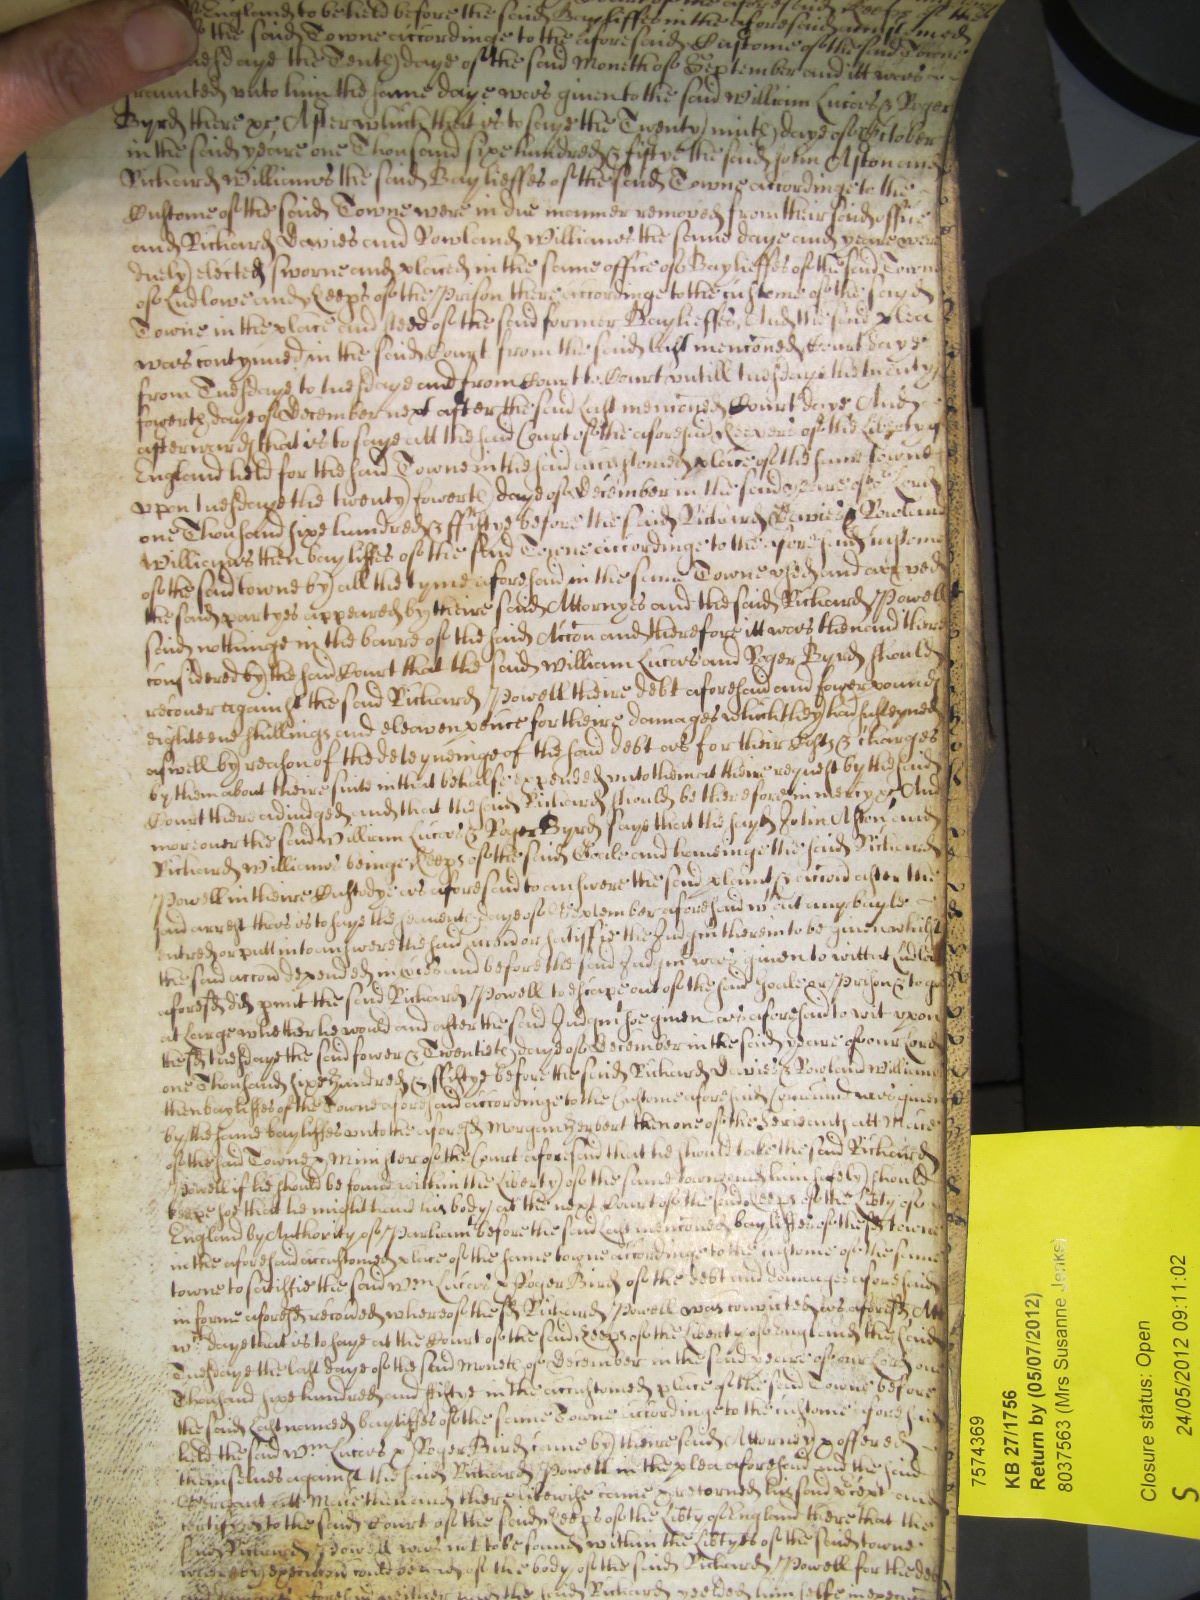 England to be held before the said Bayliffes in the aforesaid
the said Towne accordinge to the aforesaid Custome of the said Towne
the Tenth daye of the said Moneth of September and itt was
graunted unto him the same daye was given to the said William Lucas & Roger
Byrd there &c After which that is to saye the Twenty ninth daye of October
in the said yeare one Thousand sixe hundred & fiftye the said John Aston and
Richard Williams the said Baylieffes of the said Towne accordinge to the
Custome of the said Towne were in due manner removed from their said office
and Richard Davies and Rowland Williams the same daye and yeare were
duely elected sworne and placed in the same office of Baylieffes of the said Towne
of Ludlowe and Keeps of the Prison there accordinge to the custome of the sayd
Towne in the place and steed of the said former Baylieffes, And the said plea
was contynued in the said Court from the said last mencioned Court daye
from Tuesdaye to tuesdaye and from Court to Court untill tuesdaye the twenty
fowerth daye of December next after the said last mencioned Court daye And
afterwards that is to saye att the said Court of the aforesaid Keepers of the Liberty of
England held for the said Towne in the said accustomed place of the same towne
upon tuesdaye the twenty fowerth daye of December in the said yeare of o Lord
one Thousand sixe hundred & fiftye before the said Richard Davies & Rowland
Williams then bayliffes of the said Towne accordinge to the aforesaid custome
of the said towne by all the tyme aforesaid in the same Towne used and
the said partyes appeared by theire said Attornyes and the said Richard Powell
said nothinge in the barre of the said Accon and therefore itt was then and there
considered by the said Court that the said William Lucas and Roger Byrd should
recover against the said Richard Powell theire debt aforesaid and fower pounds
eighteene shillings and eleaven pence for theire damages which they had susteyned
aswell by reason of the deteyneinge of the said debt as for their Costs & charges
by them about theire suite in that behalfe expended unto them at theire request by the said
Court there adiudged and that the said Richard should be therefore in mercy &c And
moreover the said William Lucas & Roger Byrd saye that the sayd John Aston and
Richard Williams beinge Keeps of the said Goale and haveinge the said Richard
Powell in theire Custodye as aforesaid to answere the said plaint & accion after the
said arrest thats is to saye the seaventh daye of September aforesaid wthout any bayle
entred or putt in to answere the said accion or satisfie the Judgmt therein to be given whilst
the said accion depended in and before the said Judgmt was given to witt at Ludlow
aforesd did pmit the said Richard Powell to escape out of the said Goale or Prison & to goe
at large whether he would and after the said Judgmt soe given as aforesaid to wit upon
the sd tuesdaye the said fower & Twentieth daye of December in the said yeare of our Lord
one Thousand sixe hundred & fiftye before the said Richard Davies & Rowland Williams
then bayliffes of the Towne aforesaid accordinge to the Custome aforesaid Comaund was given
by the same bayliffes unto the aforesd Morgan Herbert then one of the Serieants att Mace
of the said Towne & Minister of the Court aforesaid that he should take the said Richard
Powell if he should be found within the Liberty of the same towne and him safely should
keepe soe that he might hand his body att the next Court of the said Keeps of the Libty of
England by Authority of Parliamt before the said last mencioned bayliffes of the sd towne
in the aforesaid accustomed place of the same towne accordinge to the custome of the same
towne to satisfie the said Wm Lucas & Roger Bird of the debt and damages aforesaid
in forme aforesd recovered whereof the sd Richard Powell was convicted as aforesd Att
wch daye that is to saye at the Court of the said Keeps of the Liberty of England the said
Tuesdaye the last daye of the said Moneth of December in the said yeare of our Lord one
Thousand sixe hundred and fiftye in the accustomed place of the said Towne before
the said last named bayliffes of the same Towne accordinge to the custome aforesaid
held the said Wm Lucas & Roger Bird came by theire said Attorney & offered
themselves against the said Richard Powell in the plea aforesaid and the said
Serieant att Mace then and there likewise came & retorned his said and
certifyed to the said Court of the said Keeps of the Libty of England there that the
said Richard Powell was not to be found within the Libtyes of the said towne
execucon could bee had of the body of the said Richard Powell for the debt
aforesaid neither the said Richard yeelded himselfe in execucon
7574369
KB 27/1756
Return by (05/07/2012)
8037563 (Mrs Susanne Jenks)
Closure status: Open
24/05/2012 09:11:02
S